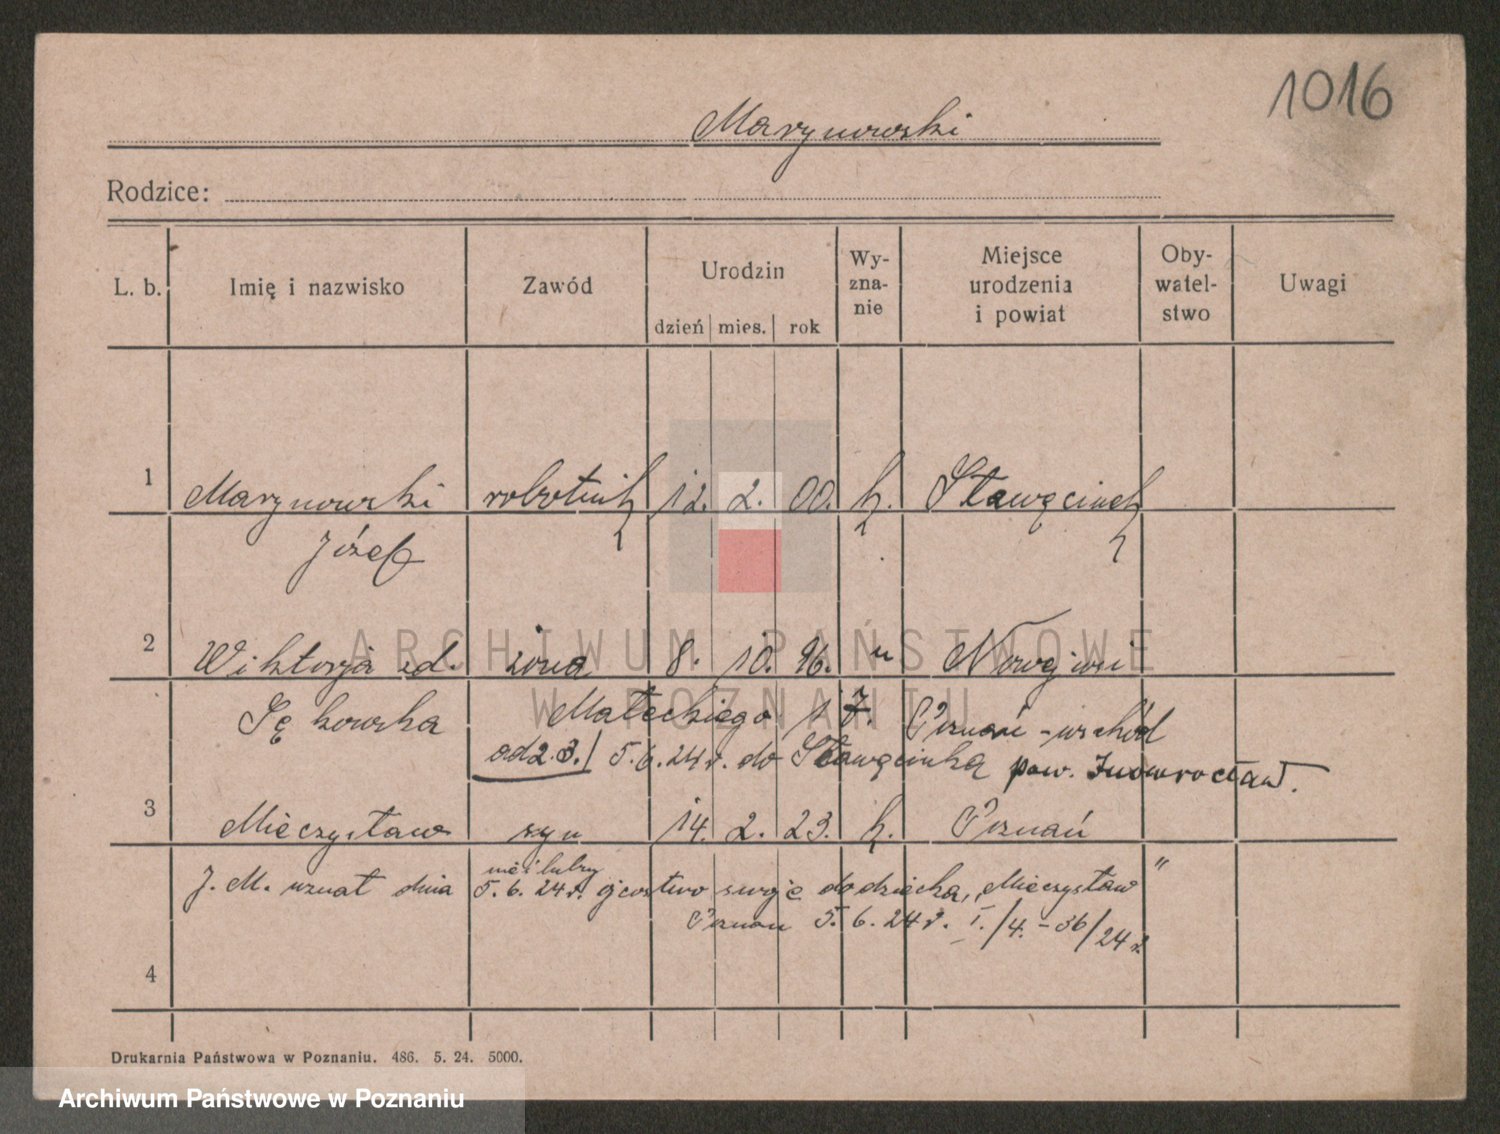 1016
Marynowski
Rodzice:
L. b. Imię i nazwisko Zawód Urodzin dzień mies. rok Wy-zna-nie Miejsce urodzenia i powiat Oby-watel-stwo Uwagi
1 Marynowski robotnik 12. 2. 00. k. Sławęcinek
Józef
2 Wiktorja zd. żona 8. 10. 96. " Nowejwsi
Sękowska Małeckiego 17. Poznań-wschód
ad 2.3./ 5.6.24r. do Sławęcinka pow. Inowrocław.
3 Mieczysław syn 14. 2. 23. k. Poznań
J. M. uznał dnia 5.6.24r. ojcostwo swoje do dziecka „Mieczysław"
Poznań 5.6.24r. I./4.-36/24r.
4
Drukarnia Państwowa w Poznaniu. 486. 5. 24. 5000.
ARCHIWUM PAŃSTWOWE
W POZNANIU
Archiwum Państwowe w Poznaniu